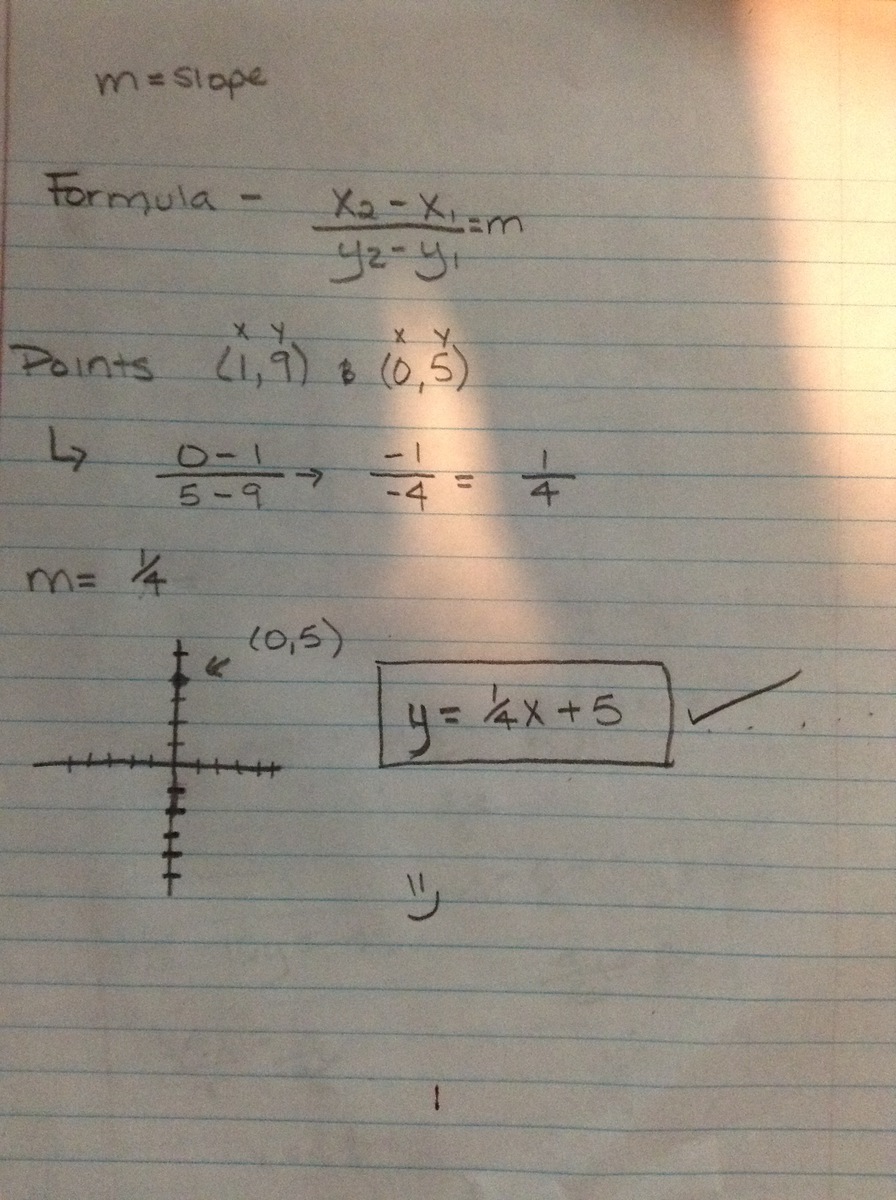 m = slope
Formula - x₂ - x₁ / y₂ - y₁ = m
x y x y
Points (1,9) & (0,5)
↳ 0 - 1 / 5 - 9 → -1 / -4 = 1 / 4
m = 1/4
(0,5)
y = 1/4x + 5 ✓
1